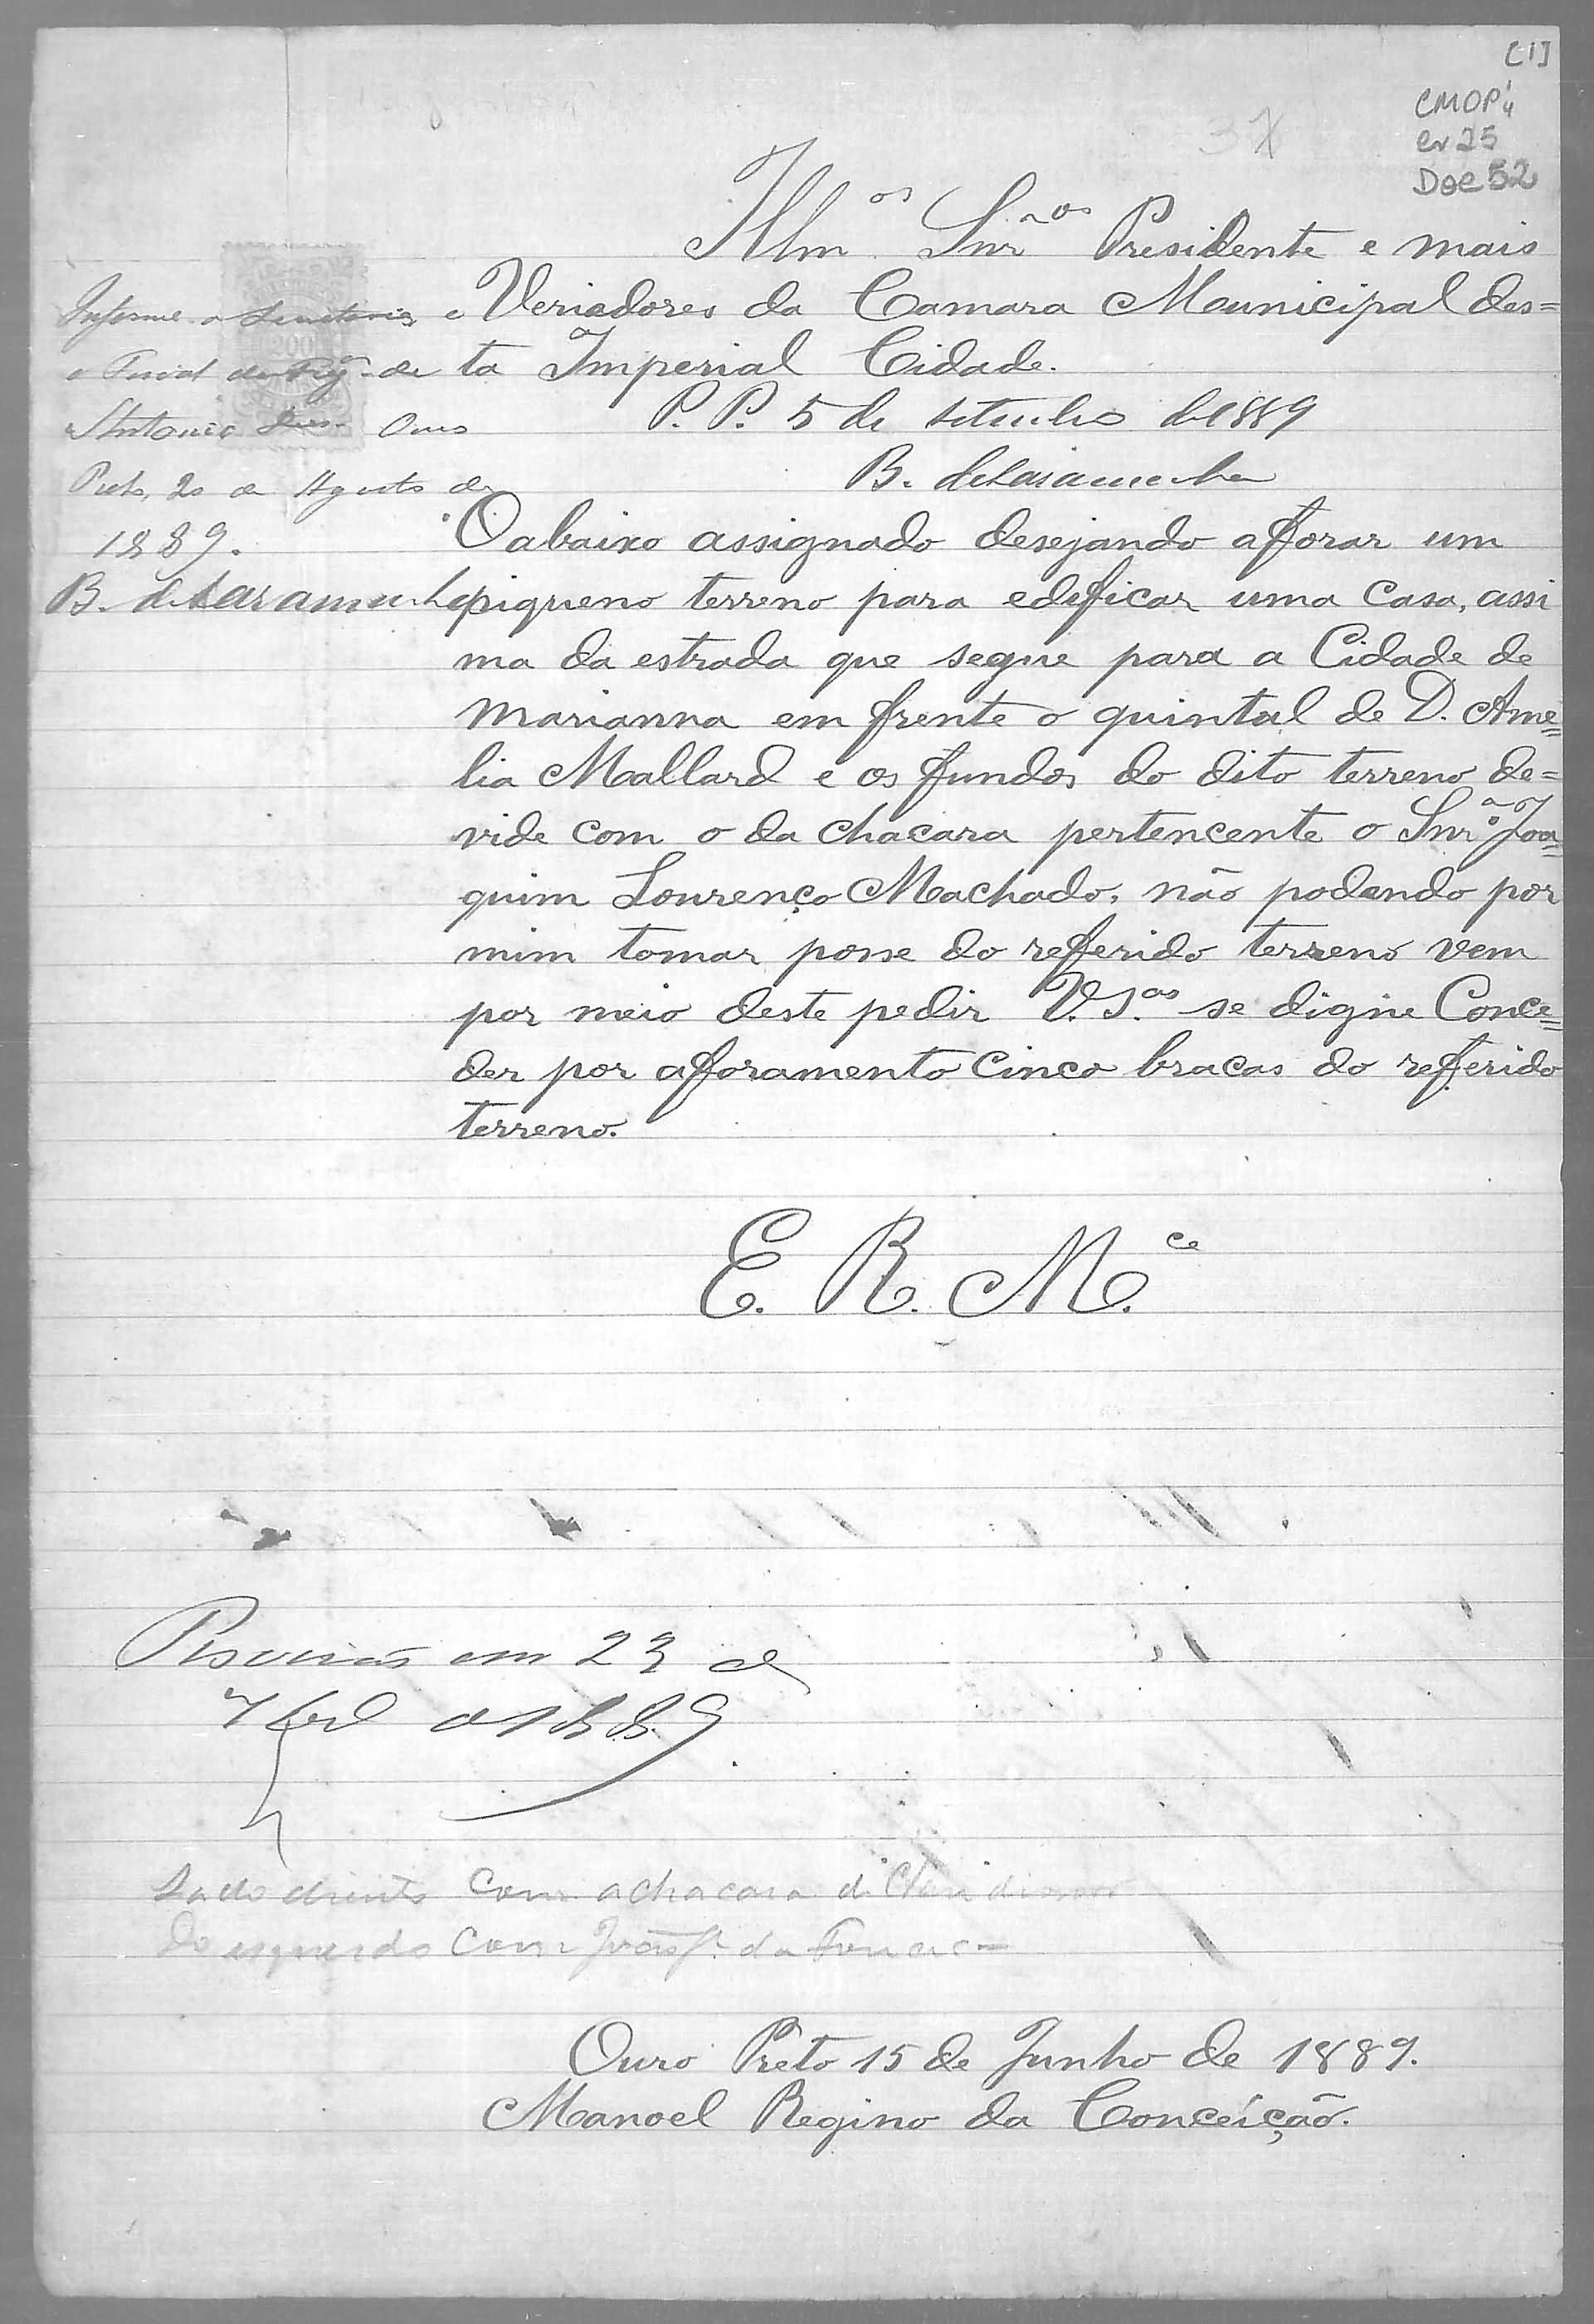 [1]
CMOP
Doc 52
37
Illm.os Snr.os Presidente e mais
Veriadores da Camara Municipal des=
ta Imperial Cidade.
P. P. 5 de setembro de 1889
B. de Saramenha
Informe o Secretario e
o Fiscal da Freg. de
Antonio Dias. Ouro
Preto, 20 de Agosto de
1889.
B. de Saramenha
O abaixo assignado desejando afforar um
piqueno terreno para edeficar uma casa, assi
ma da estrada que segue para a Cidade de
Marianna em frente o quintal de D. Ame=
lia Mallard e os fundos do dito terreno de=
vide com o da chacara pertencente o Snr. Joa=
quim Lourenço Machado, não podendo por
mim tomar posse do refferido terreno vem
por meio deste pedir V. S.as se digne Conce=
der por afforamento cinco bracas do refferido
terreno.
E. R. M.ce
em 23 de
7br.o d 1889
Lado direito com a chacara di
Do esquerdo com João da
Ouro Preto 15 de Junho de 1889.
Manoel Regino da Conceição.